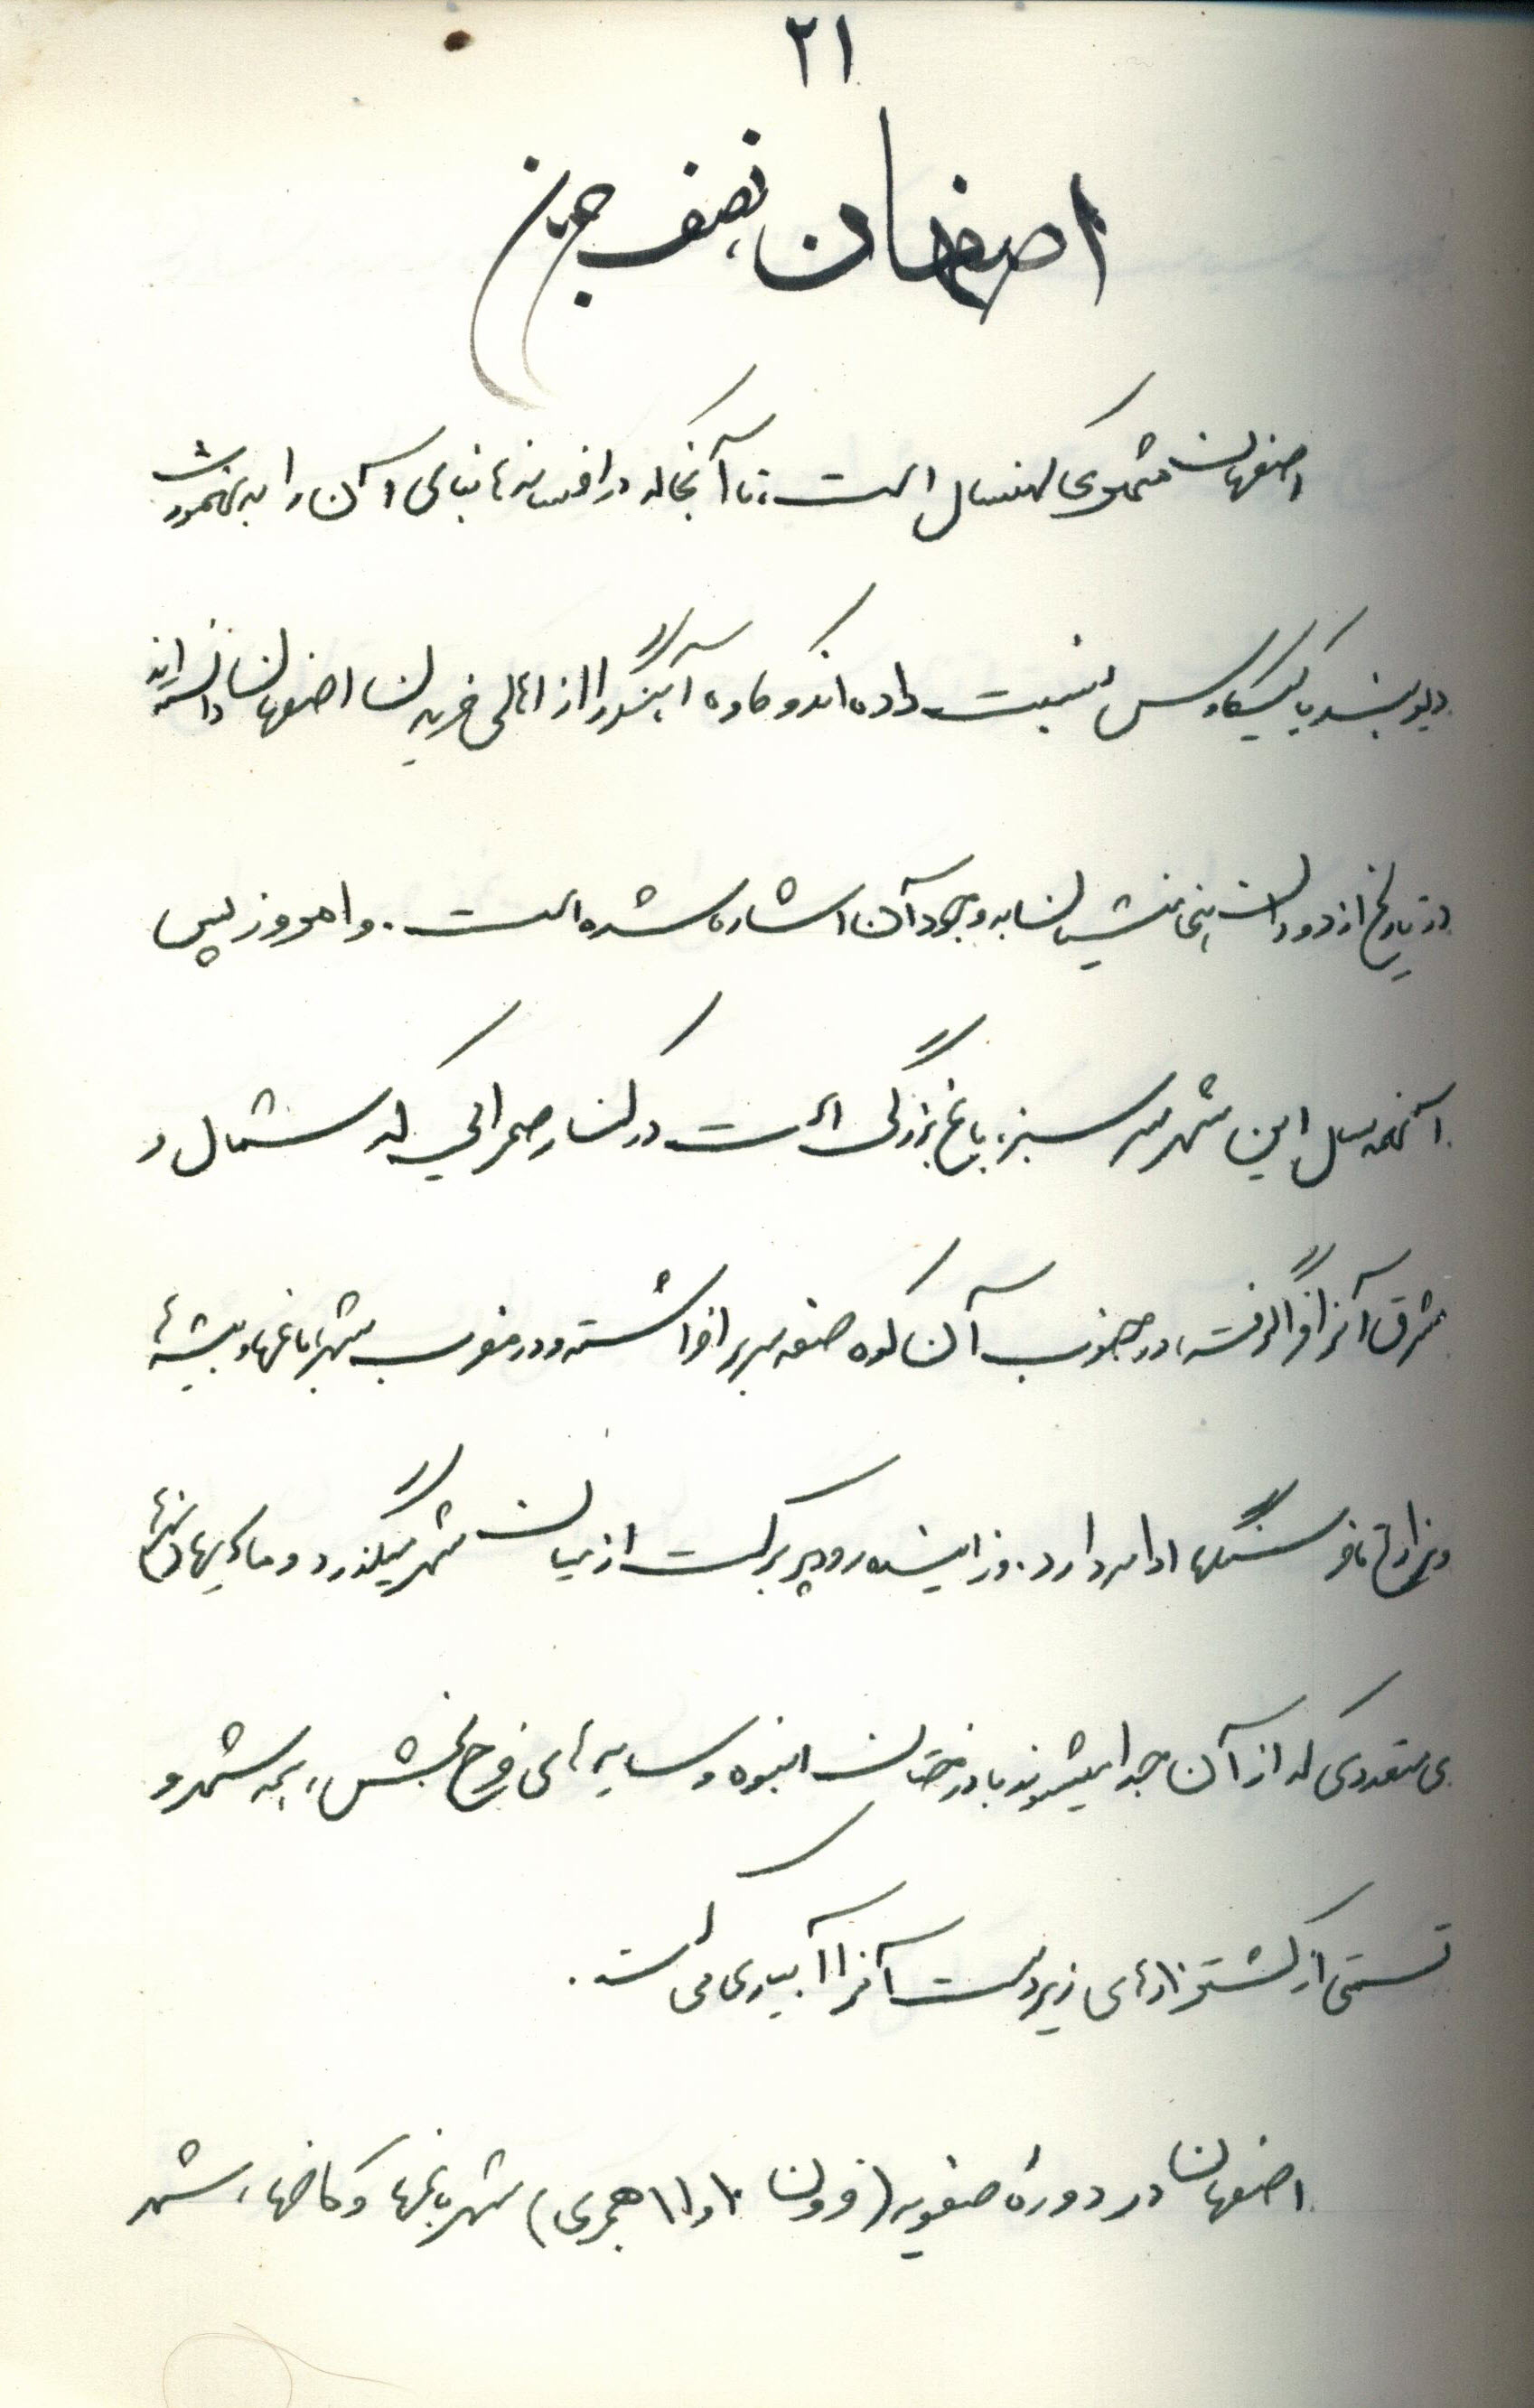 ۲۱
اصفهان نصف جهان
اصفهان شهری کهنسال است، تا آنجا که در افسانه‌ها بنای آن را به طهمورث
دیوبند یا کیکاوس نسبت داده‌اند و کاوه آهنگر را از اهالی فریدن اصفهان دانسته‌اند
در تاریخ از دوران هخامنشیان به وجود آن اشاره شده است. و امروز پس
آنهمه سال این شهر سرسبز، باغ بزرگی است در کنار صحرائی که شمال و
شرق آنرا فرا گرفته، در جنوب آن کوه صفه سر بر افراشته و در مغرب شهر، باغها و بیشه‌ها
و مزارع تا فرسنگها ادامه دارد. و زاینده رود پر برکت از میان شهر میگذرد و مادیها و نهرها
ی متعددی که از آن جدا میشوند با درختان انبوه و سایه‌های فرح بخش، همه شهر و
قسمتی از کشتزارهای زیردست آنرا آبیاری می‌کند.
اصفهان در دورهٔ صفویه (قرون ۱۰ و ۱۱ هجری) شهر باغها و کاخها، شهر